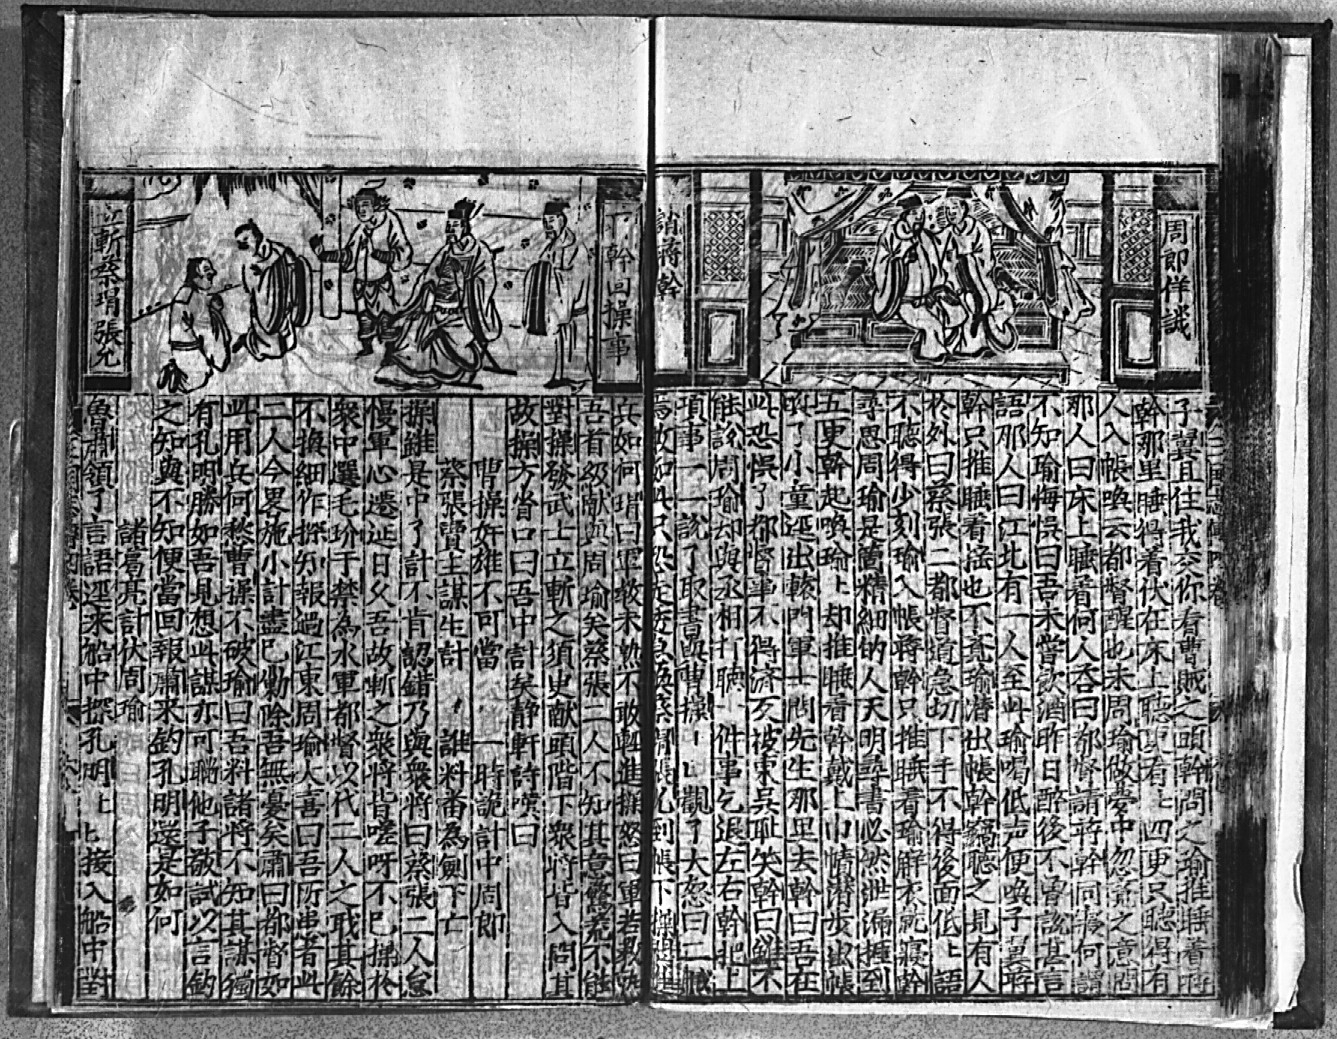 周郎佯談
請蔣幹
子翼且住我交你看曹賊之頭幹問之瑜推睡着
幹那里睡得着伏在床上聽更有四更只聽得有
人入帳喚云都督醒也未周瑜做夢中忽驚之意問
那人曰床上睡着何人答曰都督請蔣幹同寢何謂
不知瑜悔悞曰吾未嘗飲酒昨日醉後不曾說甚言
語那人曰江北有一人至此瑜喝低声便喚子翼蔣
幹只推睡着瑜潜出帳幹竊聽之見有人
於外曰蔡張二都督道急切下手不得後面低上語
不聽得少刻瑜入帳蔣幹只推睡着瑜解衣就寢幹
尋思周瑜是箇精細的人天明尋書必然泄漏捱到
五更幹起喚瑜上却推睡着幹戴上巾幘潜步出帳
叫了小童逕出轅門軍士問先生那里去幹曰吾在
此恐悞了都督事不得濟又被東吳耻笑幹曰雖不
能說周瑜却與丞相打聽一件事乞退左右幹把上
項事一一說了取書與曹操上觀了大怒曰二賊
幹回操事
斬蔡瑁張允
兵如何瑁曰軍教未熟不敢輕進操怒曰軍若教熟
吾首級献與周瑜矣蔡張二人不知其意驚荒不能
對操發武士立斬之須臾献頭階下衆將皆入問其
故操方省口曰吾中計矣静軒詩嘆曰
曹操奸雄不可當 一時詭計中周郎
蔡張賣主謀生計 誰料番為劍下亡
操雖是中了計不肯認錯乃與衆將曰蔡張二人怠
慢軍心遷延日久吾故斬之衆將皆嗟呀不已操於
衆中選毛玠于禁為水軍都督以代二人之職其餘
不換細作探知報過江東周瑜大喜曰吾所患者此
二人今畧施小計盡已勦除吾無憂矣肅曰都督如
此用兵何愁曹操不破瑜曰吾料諸將不知其謀獨
有孔明勝如吾見想此謀亦可瞞他子敬試以言釣
之知與不知便當回報肅来釣孔明還是如何
諸葛亮計伏周瑜
魯肅領了言語逕来船中探孔明上上接入船中對